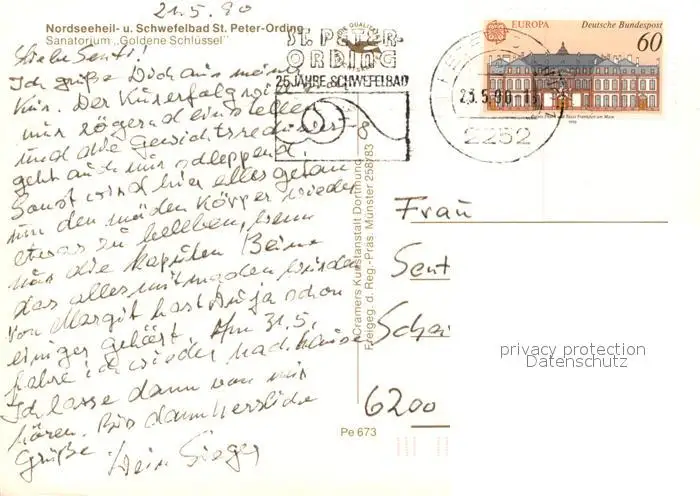 21.5.90
Nordseeheil- u. Schwefelbad St. Peter-Ording
Sanatorium „Goldene Schlüssel"
Liebe Senti!
Ich grüße Dich aus meiner
Kur. Der Kurerfolg will
nur zögernd einstellen
und die Gewichtsreduzierg
geht auch nur schleppend.
Sonst wird hier alles getan
um den müden Körper wieder
etwas zu beleben, wenn
nur die kaputten Beine
das alles mitmachen würden
Von Margit hast Du ja schon
einiges gehört. Am 31.5.
fahre ich wieder nach Hause
Ich lasse dann von mir
hören. Bis dann herzliche
Grüße
Hein
ST. PETER-
ORDING
25 JAHRE SCHWEFELBAD
23.5.90
2252
EUROPA
Deutsche Bundespost
60
1990
Cramers Kunstanstalt Dortmund
Freigeg. d. Reg.-Präs. Münster 258/83
Pe 673
Frau
Sent
Schai
6200
privacy protection
Datenschutz